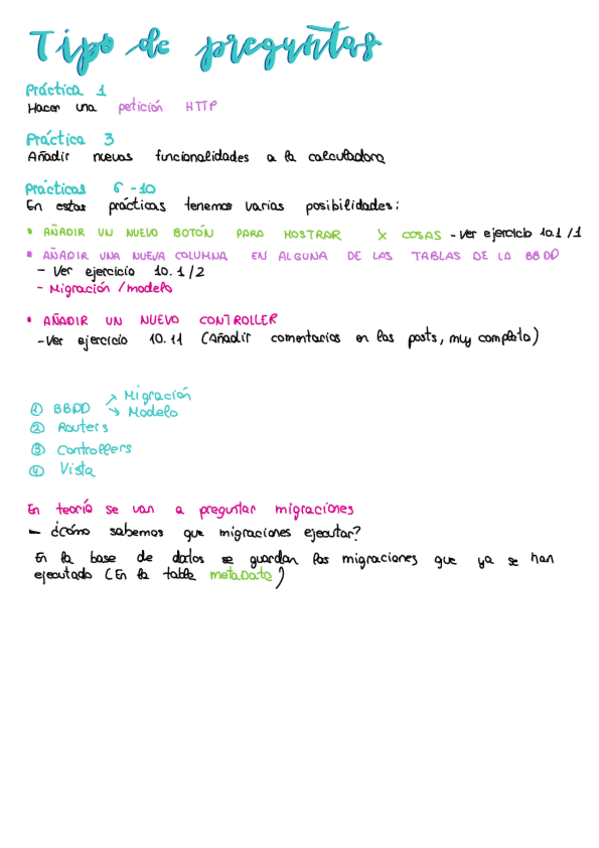 Tipo de preguntas
Práctica 1
Hacer una petición HTTP
Práctica 3
Añadir nuevas funcionalidades a la calculadora
Prácticas 6-10
En estas prácticas tenemos varias posibilidades:
• AÑADIR UN NUEVO BOTÓN PARA MOSTRAR X COSAS - Ver ejercicio 10.1 / 1
• AÑADIR UNA NUEVA COLUMNA EN ALGUNA DE LAS TABLAS DE LA BBDD
- Ver ejercicio 10.1/2
- Migración / modelo
• AÑADIR UN NUEVO CONTROLLER
- Ver ejercicio 10.11 (Añadir comentarios en los posts, muy completo)
① BBDD ↗ Migración
↘ Modelo
② Routers
③ Controllers
④ Vista
En teoría se van a preguntar migraciones
- ¿Cómo sabemos que migraciones ejecutar?
En la base de datos se guardan las migraciones que ya se han
ejecutado (En la table metaData)